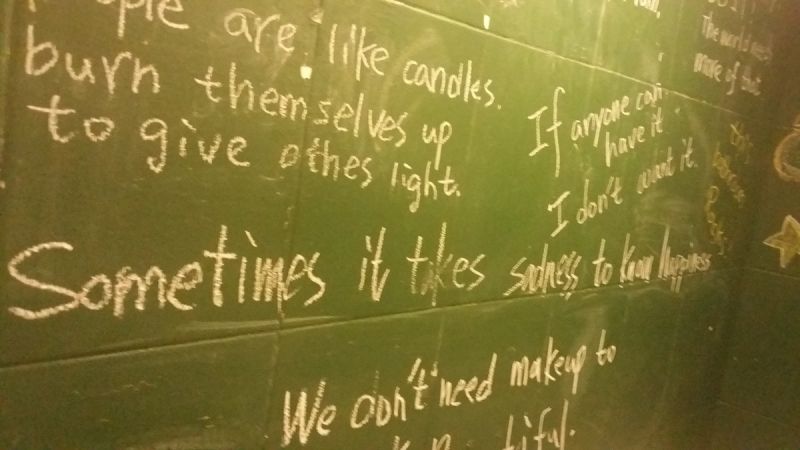 people are like candles.
burn themselves up
to give othes light.
If anyone can
have it
I don't want it.
The world needs
more of that
Sometimes it takes sadness to know happiness
We don't need makeup to
beautiful.